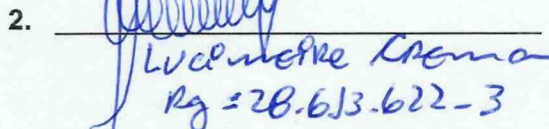 2.
Lucimeire Crema
Rg = 28.613.622-3